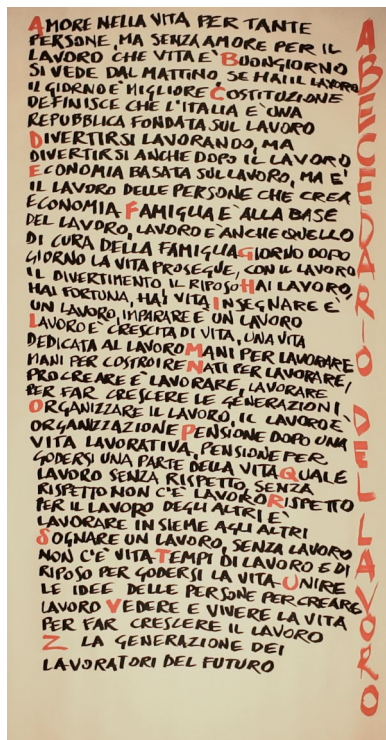 AMORE NELLA VITA PER TANTE
PERSONE, MA SENZA AMORE PER IL
LAVORO CHE VITA E' BUONGIORNO
SI VEDE DAL MATTINO, SE HAI IL LAVORO
IL GIORNO E' MIGLIORE COSTITUZIONE
DEFINISCE CHE L'ITALIA E' UNA
REPUBBLICA FONDATA SUL LAVORO
DIVERTIRSI LAVORANDO, MA
DIVERTIRSI ANCHE DOPO IL LAVORO
ECONOMIA BASATA SUL LAVORO, MA E'
IL LAVORO DELLE PERSONE CHE CREA
ECONOMIA FAMIGLIA E' ALLA BASE
DEL LAVORO, LAVORO E' ANCHE QUELLO
DI CURA DELLA FAMIGLIA GIORNO DOPO
GIORNO LA VITA PROSEGUE, CON IL LAVORO
IL DIVERTIMENTO, IL RIPOSO HAI LAVORO,
HAI FORTUNA, HAI VITA INSEGNARE E'
UN LAVORO, IMPARARE E' UN LAVORO
LAVORO E' CRESCITA DI VITA, UNA VITA
DEDICATA AL LAVORO MANI PER LAVORARE
MANI PER COSTROIRE NATI PER LAVORARE,
PROCREARE E' LAVORARE, LAVORARE
PER FAR CRESCERE LE GENERAZIONI
ORGANIZZARE IL LAVORO, IL LAVORO E'
ORGANIZZAZIONE PENSIONE DOPO UNA
VITA LAVORATIVA, PENSIONE PER
GODERSI UNA PARTE DELLA VITA QUALE
LAVORO SENZA RISPETTO, SENZA
RISPETTO NON C'E' LAVORO RISPETTO
PER IL LAVORO DEGLI ALTRI E'
LAVORARE INSIEME AGLI ALTRI
SOGNARE UN LAVORO, SENZA LAVORO
NON C'E' VITA TEMPI DI LAVORO E DI
RIPOSO PER GODERSI LA VITA UNIRE
LE IDEE DELLE PERSONE PER CREARE
LAVORO VEDERE E VIVERE LA VITA
PER FAR CRESCERE IL LAVORO
Z LA GENERAZIONE DEI
LAVORATORI DEL FUTURO
ABECEDARIO DEL LAVORO